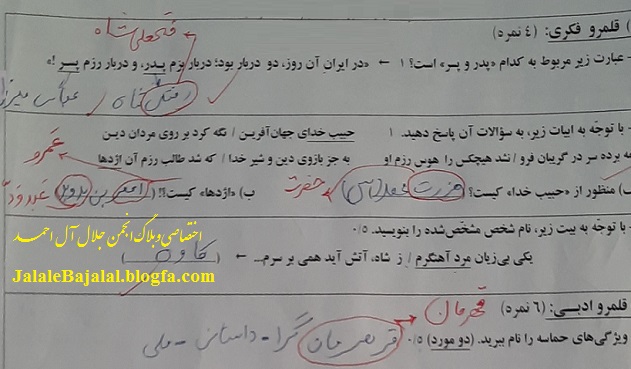 ) قلمرو فکری: (٤ نمره)
فتحعلی شاه
- عبارت زیر مربوط به کدام «پدر و پسر» است؟ ١ ← «در ایران آن روز، دو دربار بود؛ دربار بزم پدر، و دربار رزم پسر !»
شاه / عباس میرزا
- با توجّه به ابیات زیر، به سؤالات آن پاسخ دهید. ١ حبیب خدای جهان‌آفرین / نگه کرد بر روی مردان دین
به برده سر در گریبان فرو / نشد هیچکس را هوس رزم او به جز بازوی دین و شیر خدا / که شد طالب رزم آن اژدها
عَمرو
) منظور از «حبیب خدا» کیست؟ (هزرت محمد (ص)) حضرت ب) «اژدها» کیست؟ ( امر بن عبدود
- با توجّه به بیت زیر، نام شخص مشخّص‌شده را بنویسید. ٠/٥
اختصاصی وبلاگ انجمن جلال آل احمد
یکی بی‌زیان مردِ آهنگرم / ز شاه، آتش آید همی بر سرم... ← ( کاوه )
JalaleBajalal.blogfa.com
قلمرو ادبی: (٦ نمره) قهرمان
ویژگی‌های حماسه را نام ببرید. (دو مورد) ٠/٥ قهرمان گرا - داستانی - ملی